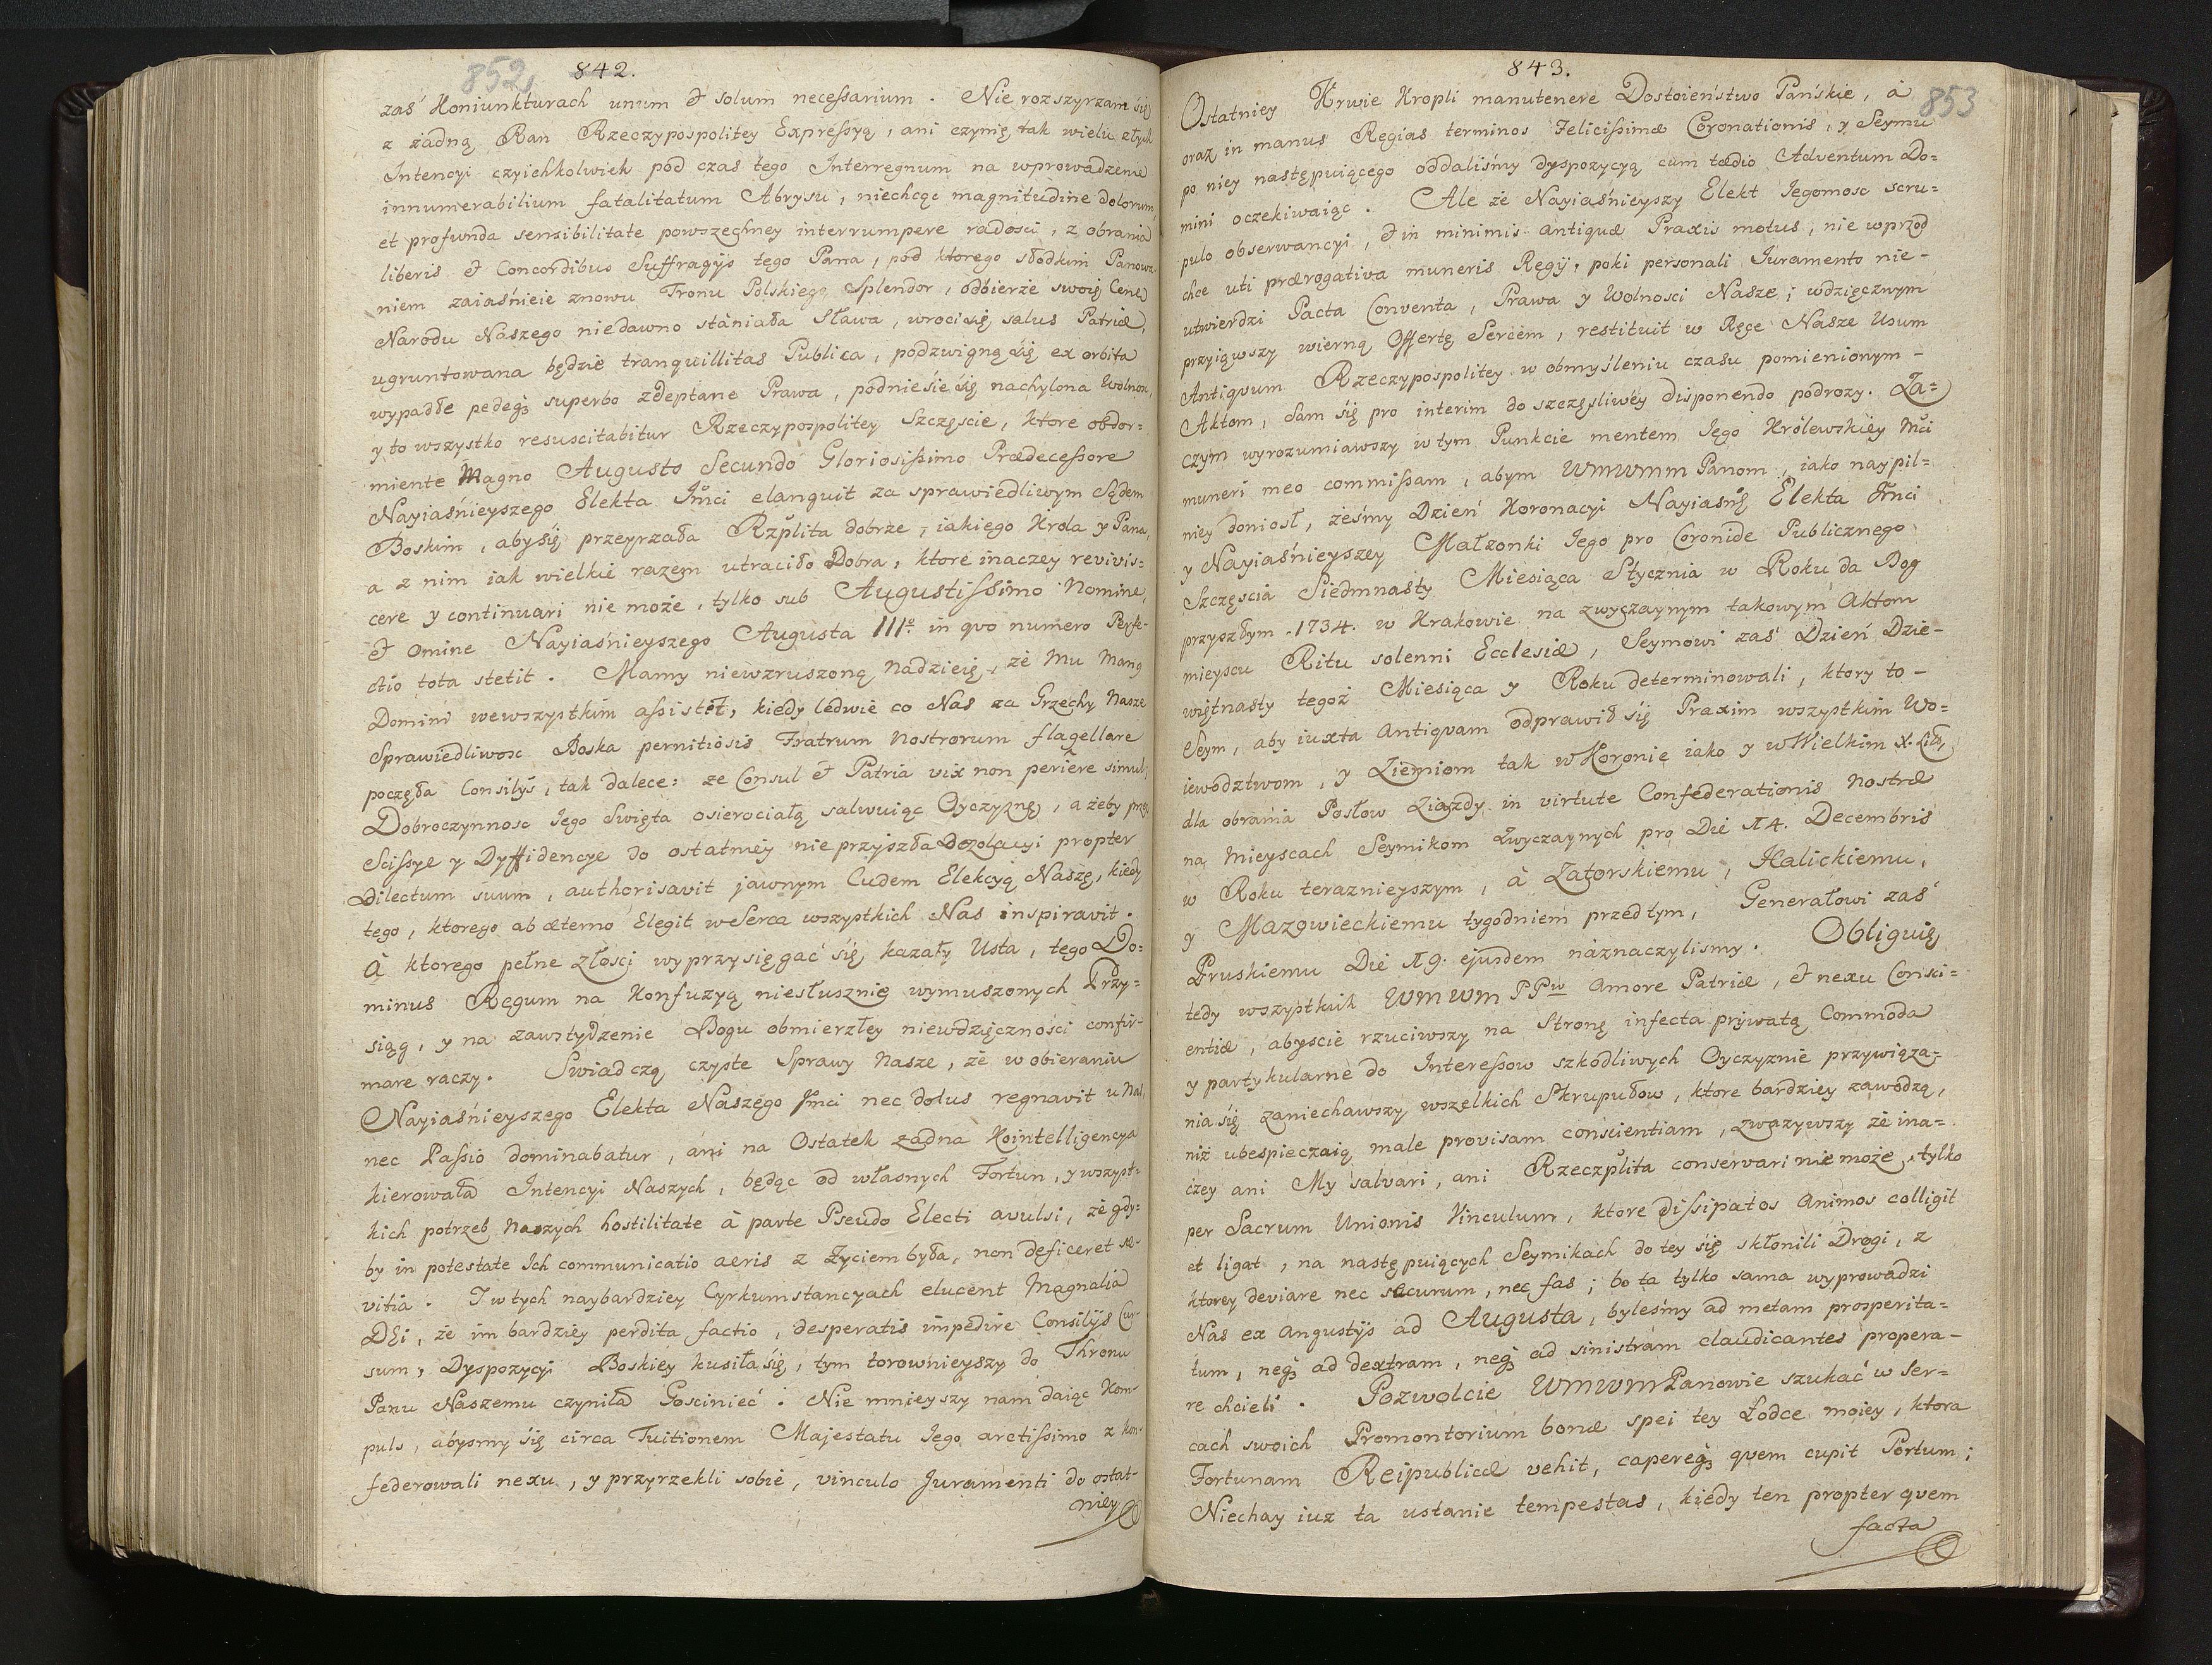 852
842.
zaś Koniunkturach unum & solum necessarium. Nie rozszyrzam się
z żadną Ran Rzeczypospolitey Expressyą, ani czynię tak wielu złych
Intencyi czyichkolwiek pod czas tego Interregnum na wprowadzenie
innumerabilium fatalitatum Abrysu, niechcąc magnitudine dolorum,
et profunda sensibilitate powszechney interrumpere radości, z obrania
liberis & Concordibus Suffragijs tego Pana, pod ktorego słodkim Panowa-
niem zaiaśnieie znowu Tronu Polskiego Splendor, odbierze swoię Cenę
Narodu Naszego niedawno staniała Sława, wroci się salus Patriæ,
ugruntowana będzie tranquillitas Publica, podzwigną się ex orbita
wypadłe pedeq3 superbo zdeptane Prawa, podniesie się nachylona Wolność,
y to wszystko resuscitabitur Rzeczypospolitey Szczęście, ktore obdor=
miente Magno Augusto Secundo Gloriosissimo Prædecessore
Nayiaśnieyszego Elekta Jmci elanguit za sprawiedliwym Sądem
Boskim, aby się przeyrzała Rzplita dobrze, iakiego Krola y Pana,
a z nim iak wielkie razem utraciło Dobra, ktore inaczey revivis=
cere y continuari nie może, tylko sub Augustissimo Nomine,
& Omine Nayiaśnieyszego Augusta IIIo. in qvo numero Perfe-
ctio tota stetit. Mamy niewzruszoną nadzieię, że Mu Manq
Domini wewszystkim assistet, kiedy ledwie co Nas za Grzechy Nasze
Sprawiedliwosc Boska pernitiosis Fratrum Nostrorum flagellare
poczęła Consilys, tak dalece: ze Consul & Patria vix non periere simul;
Dobroczynnosc Jego Swięta osierociałą salwuiąc Oyczyznę, a żeby prze
Scissye y Dyffidencye do ostatniey nie przyszła Dezolacyi propter
Dilectum suum, authorisavit jawnym Cudem Elekcyą Naszę, kiedy
tego, ktorego ab æterno Elegit w Serca wszystkich Nas inspiravit.
à ktorego pełne złości wyprzysięgać się kazały Usta, tego Do=
minus Regum na Konfuzyą niesłusznie wymuszonych Przy=
siąg, y na zawstydzenie Bogu obmierzłey niewdzięczności confir-
mare raczy. Swiadczą czyste Sprawy Nasze, że w obieraniu
Nayiaśnieyszego Elekta Naszego Jmci nec dolus regnavit u Nas,
nec Passio dominabatur, ani na Ostatek żadna Kointelligencya
kierowała Intencyi Naszych, będąc od własnych Fortun, y wszyst-
kich potrzeb Naszych hostilitate à parte Pseudo Electi avulsi, że gdy=
by in potestate Ich communicatio aeris z życiem była, non deficeret sæ-
vitia. I w tych naybardziey Cyrkumstancyach elucent Magnalia
Dei, że im bardziey perdita factio, desperatis impedire Consilijs Cur-
sum, Dyspozycyi Boskiey kusiła się, tym torownieyszy do Thronu
Panu Naszemu czyniła Gościniec. Nie mnieyszy nam daiąc Kom-
puls, abysmy się circa Tuitionem Majestatu Jego arctissimo z kon-
federowali nexu, y przyrzekli sobie, vinculo Juramenti do ostat-
niey
843.
853
Ostatniey Krwie Kropli manutenere Dostoieństwo Pańskie, à
oraz in manus Regias terminos Felicissimæ Coronationis, y Seymu
po niey następuiącego oddaliśmy dyspozycyą cum tædio Adventum Do=
mini oczekiwaiąc. Ale że Nayiaśnieyszy Elekt Jegomosc scru=
pulo obserwancyi, & in minimis antiquæ Praxis motus, nie wprzod
chce uti prærogativa muneris Regij, poki personali Iuramento nie-
utwierdzi Pacta Conventa, Prawa y Wolnosci Nasze; wdzięcznym
przyiąwszy wierną Offertę Sercem, restituit w Ręce Nasze Usum
Antiqvum Rzeczypospolitey w obmyśleniu czasu pomienionym-
Aktom, sam się pro interim do szczęsliwey disponendo podrozy. Za=
czym wyrozumiawszy w tym Punkcie mentem Jego Królewskiéy Mci
muneri meo commissam, abym WmWmm Panom, iako naypil=
niey doniosł, żeśmy Dzień Koronacyi Nayiasn Elekta Jmci
y Nayiaśnieyszey Małżonki Jego pro Coronide Publicznego
Szczęscia Siedmnasty Miesiąca Stycznia w Roku da Bog
przyszłym 1734. w Krakowie na zwyczaynym takowym Aktom
mieyscu Ritu solenni Ecclesiæ, Seymowi zaś Dzień Dzie-
więtnasty tegoż Miesiąca y Roku determinowali, ktory to-
Seym, aby iuxta Antiqvam odprawił się Praxim wszystkim Wo=
iewodztwom, y Ziemiom tak w Koronie iako y w Wielkim X. Litt,
dla obrania Posłow Ziazdy in virtute Confederationis Nostræ
na Mieyscach Seymikom Zwyczaynych pro Die 14. Decembris
w Roku teraznieyszym, à Zatorskiemu, Halickiemu,
y Mazowieckiemu tygodniem przed tym, Generałowi zaś
Pruskiemu Die 19. ejusdem naznaczylismy. Obliguię
tedy wszystkich WmWm PPw Amore Patriæ, & nexu Consci=
entiæ, abyscie rzuciwszy na Stronę infecta prywatą Commoda
y partykularne do Interessow szkodliwych Oyczyznie przywiąza=
nia się zaniechawszy wszelkich Skrupułow, ktore bardziey zawodzą,
niż ubespieczaią male provisam conscientiam, zwazywszy że ina=
czey ani My salvari, ani Rzeczplita conservari nie może, tylko
per Sacrum Unionis Vinculum, ktore dissipatos Animos colligit
et ligat, na następuiących Seymikach do tey się skłonili Drogi, z
ktorey deviare nec securum, nec fas; bo ta tylko sama wyprowadzi
Nas ex Angustijs ad Augusta, byleśmy ad metam prosperita=
tum, neq3 ad dextram, neq3 ad sinistram claudicantes propera-
re chcieli. Pozwolcie WmWm Panowie szukać w Ser=
cach swoich Promontorium bonæ spei tey Łodce moiey, ktora
Fortunam Reipublicæ vehit, capereq3 qvem cupit Portum;
Niechay iuz ta ustanie tempestas, kiedy ten propter qvem
facta